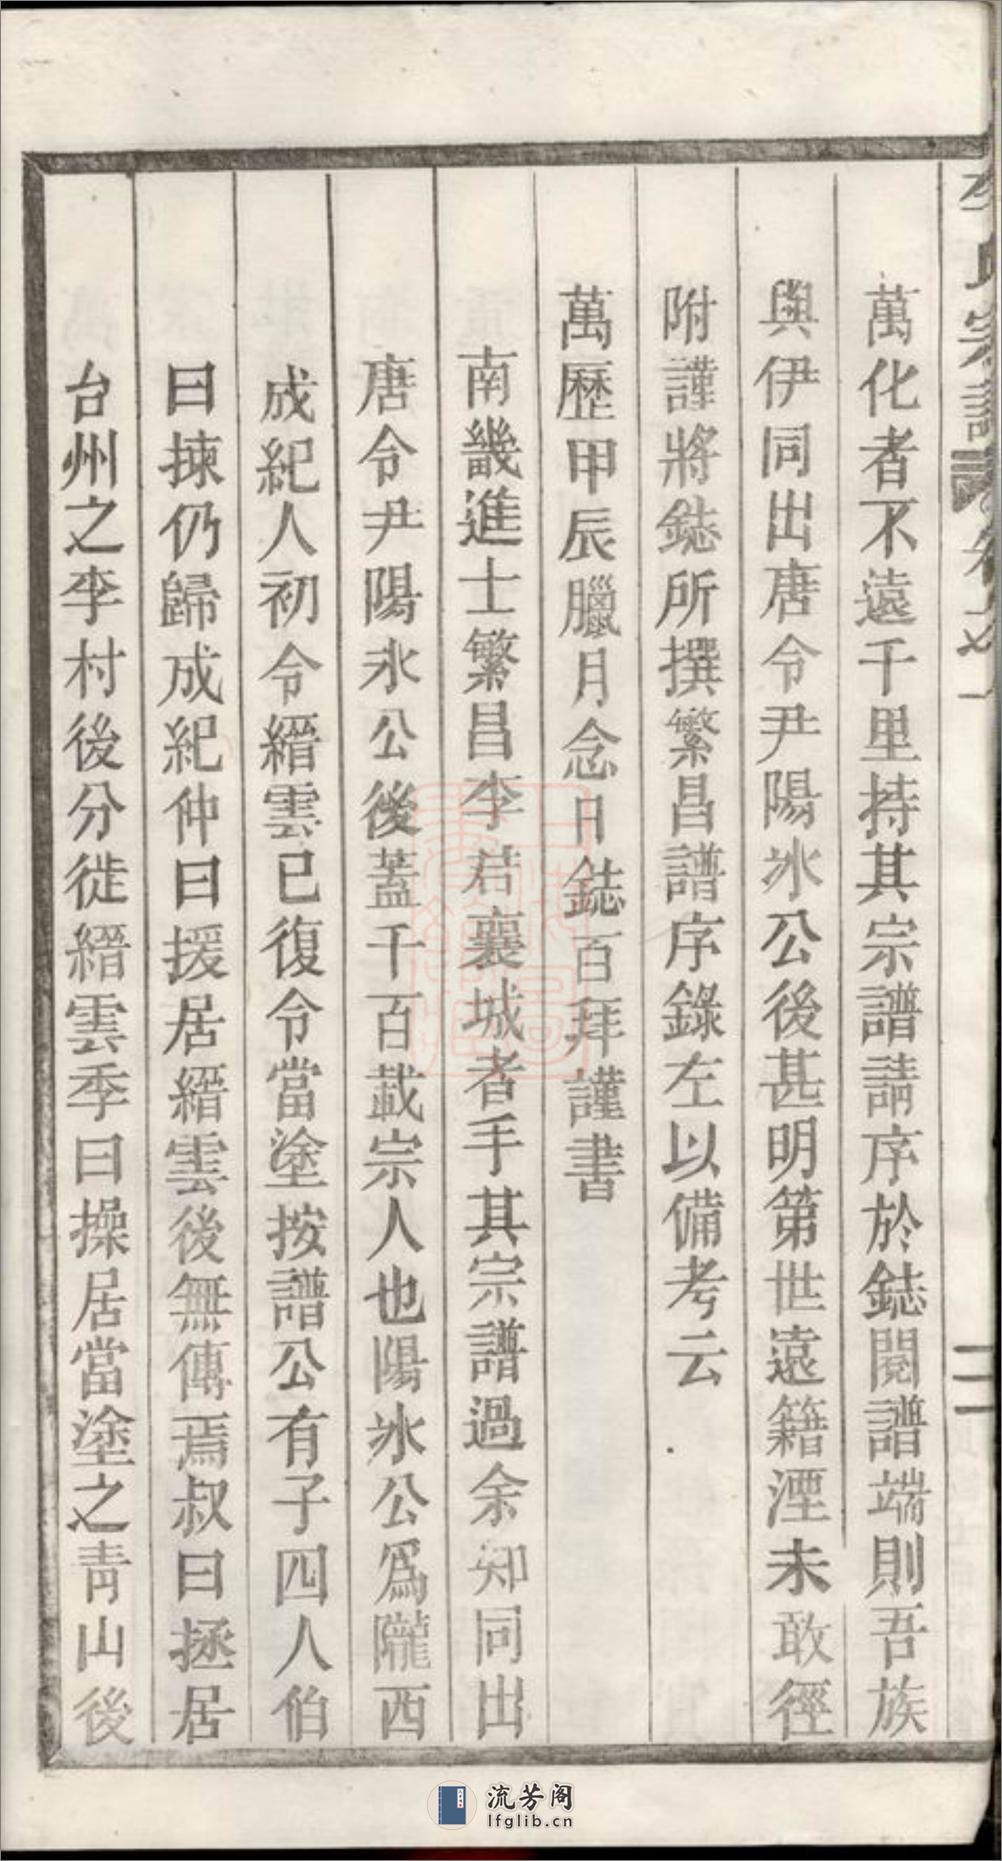 李氏宗譜
卷之一
二
萬化者不遠千里持其宗譜請序於鋕閱譜端則吾族
與伊同出唐令尹陽冰公後甚明第世遠籍湮未敢徑
附謹將鋕所撰繁昌譜序錄左以備考云
萬歷甲辰臘月念日鋕百拜謹書
南畿進士繁昌李君襄城者手其宗譜過余知同出
唐令尹陽氷公後蓋千百載宗人也陽氷公爲隴西
成紀人初令縉雲已復令當塗按譜公有子四人伯
曰揀仍歸成紀仲曰援居縉雲後無傳焉叔曰拯居
台州之李村後分徙縉雲季曰操居當塗之青山後
流芳阁
lfglib.cn